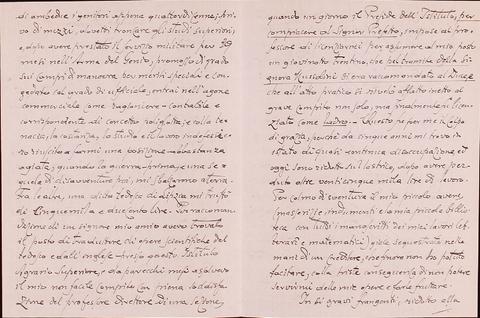 di ambedue i genitori appena quattordicenne, privo
di mezzi, dovetti troncare gli studi superiori,
e dopo avere prestato il servizio militare per 39
mesi nell'arma del Genio, promosso di grado
sul campo di manovre per meriti speciali e con-
gedato col grado di ufficiale, entrai nell'agone
commerciale come ragioniere-contabile e
corrispondente di concetto poliglotta; e colla te-
nacia, la costanza, lo studio ed il lavoro indefesso e-
ro riuscito a farmi una posizione abbastanza
agiata; quando la guerra prima, e una se-
quela di disavventure poi, mi sbalzarono a terra.
Fra le altre, una ditta tedesca di mi truffò
di Cinquemila e duecento lire. Dietro raccoman-
dazione di un signore mio amico avevo trovato
il posto di traduttore di opere scientifiche dal
tedesco e dall'inglese presso questo Istituto
Agrario Superiore, e da parecchi mesi assolvevo
il mio non facile compito con piena soddisfa-
zione del professore direttore di una sezione,
quando un giorno il Preside dell'Istituto, per
compiacere al Signor Prefetto, impose al pro-
fessore di licenziarmi per assumere al mio posto
un giovinotto trentino, che per tramite della Si-
gnora Mussolini si era raccomandato al Duce e
che all'atto pratico si rivelò affatto inetto al
grave compito non solo, ma finalmente lo licen-
ziato come ladro. - Questo fu per me il colpo
di grazia, perchè da cinque anni mi trovo in
stato di quasi continua disoccupazione ed
oggi sono ridotto sul lastrico, dopo avere per-
duto altre venticinque mila lire di lavoro.
Per colmo di sventura il mio piccolo avere,
(masserizie, indumenti e la mia piccola biblio-
teca con tutti i manoscritti dei miei lavori let-
terari e matematici) giace sequestrato nelle
mani di un creditore, che finora non ho potuto
tacitare, colla triste conseguenza di non potere
servirmi delle mie opere e farle fruttare.
In sì gravi frangenti, ridotto alla